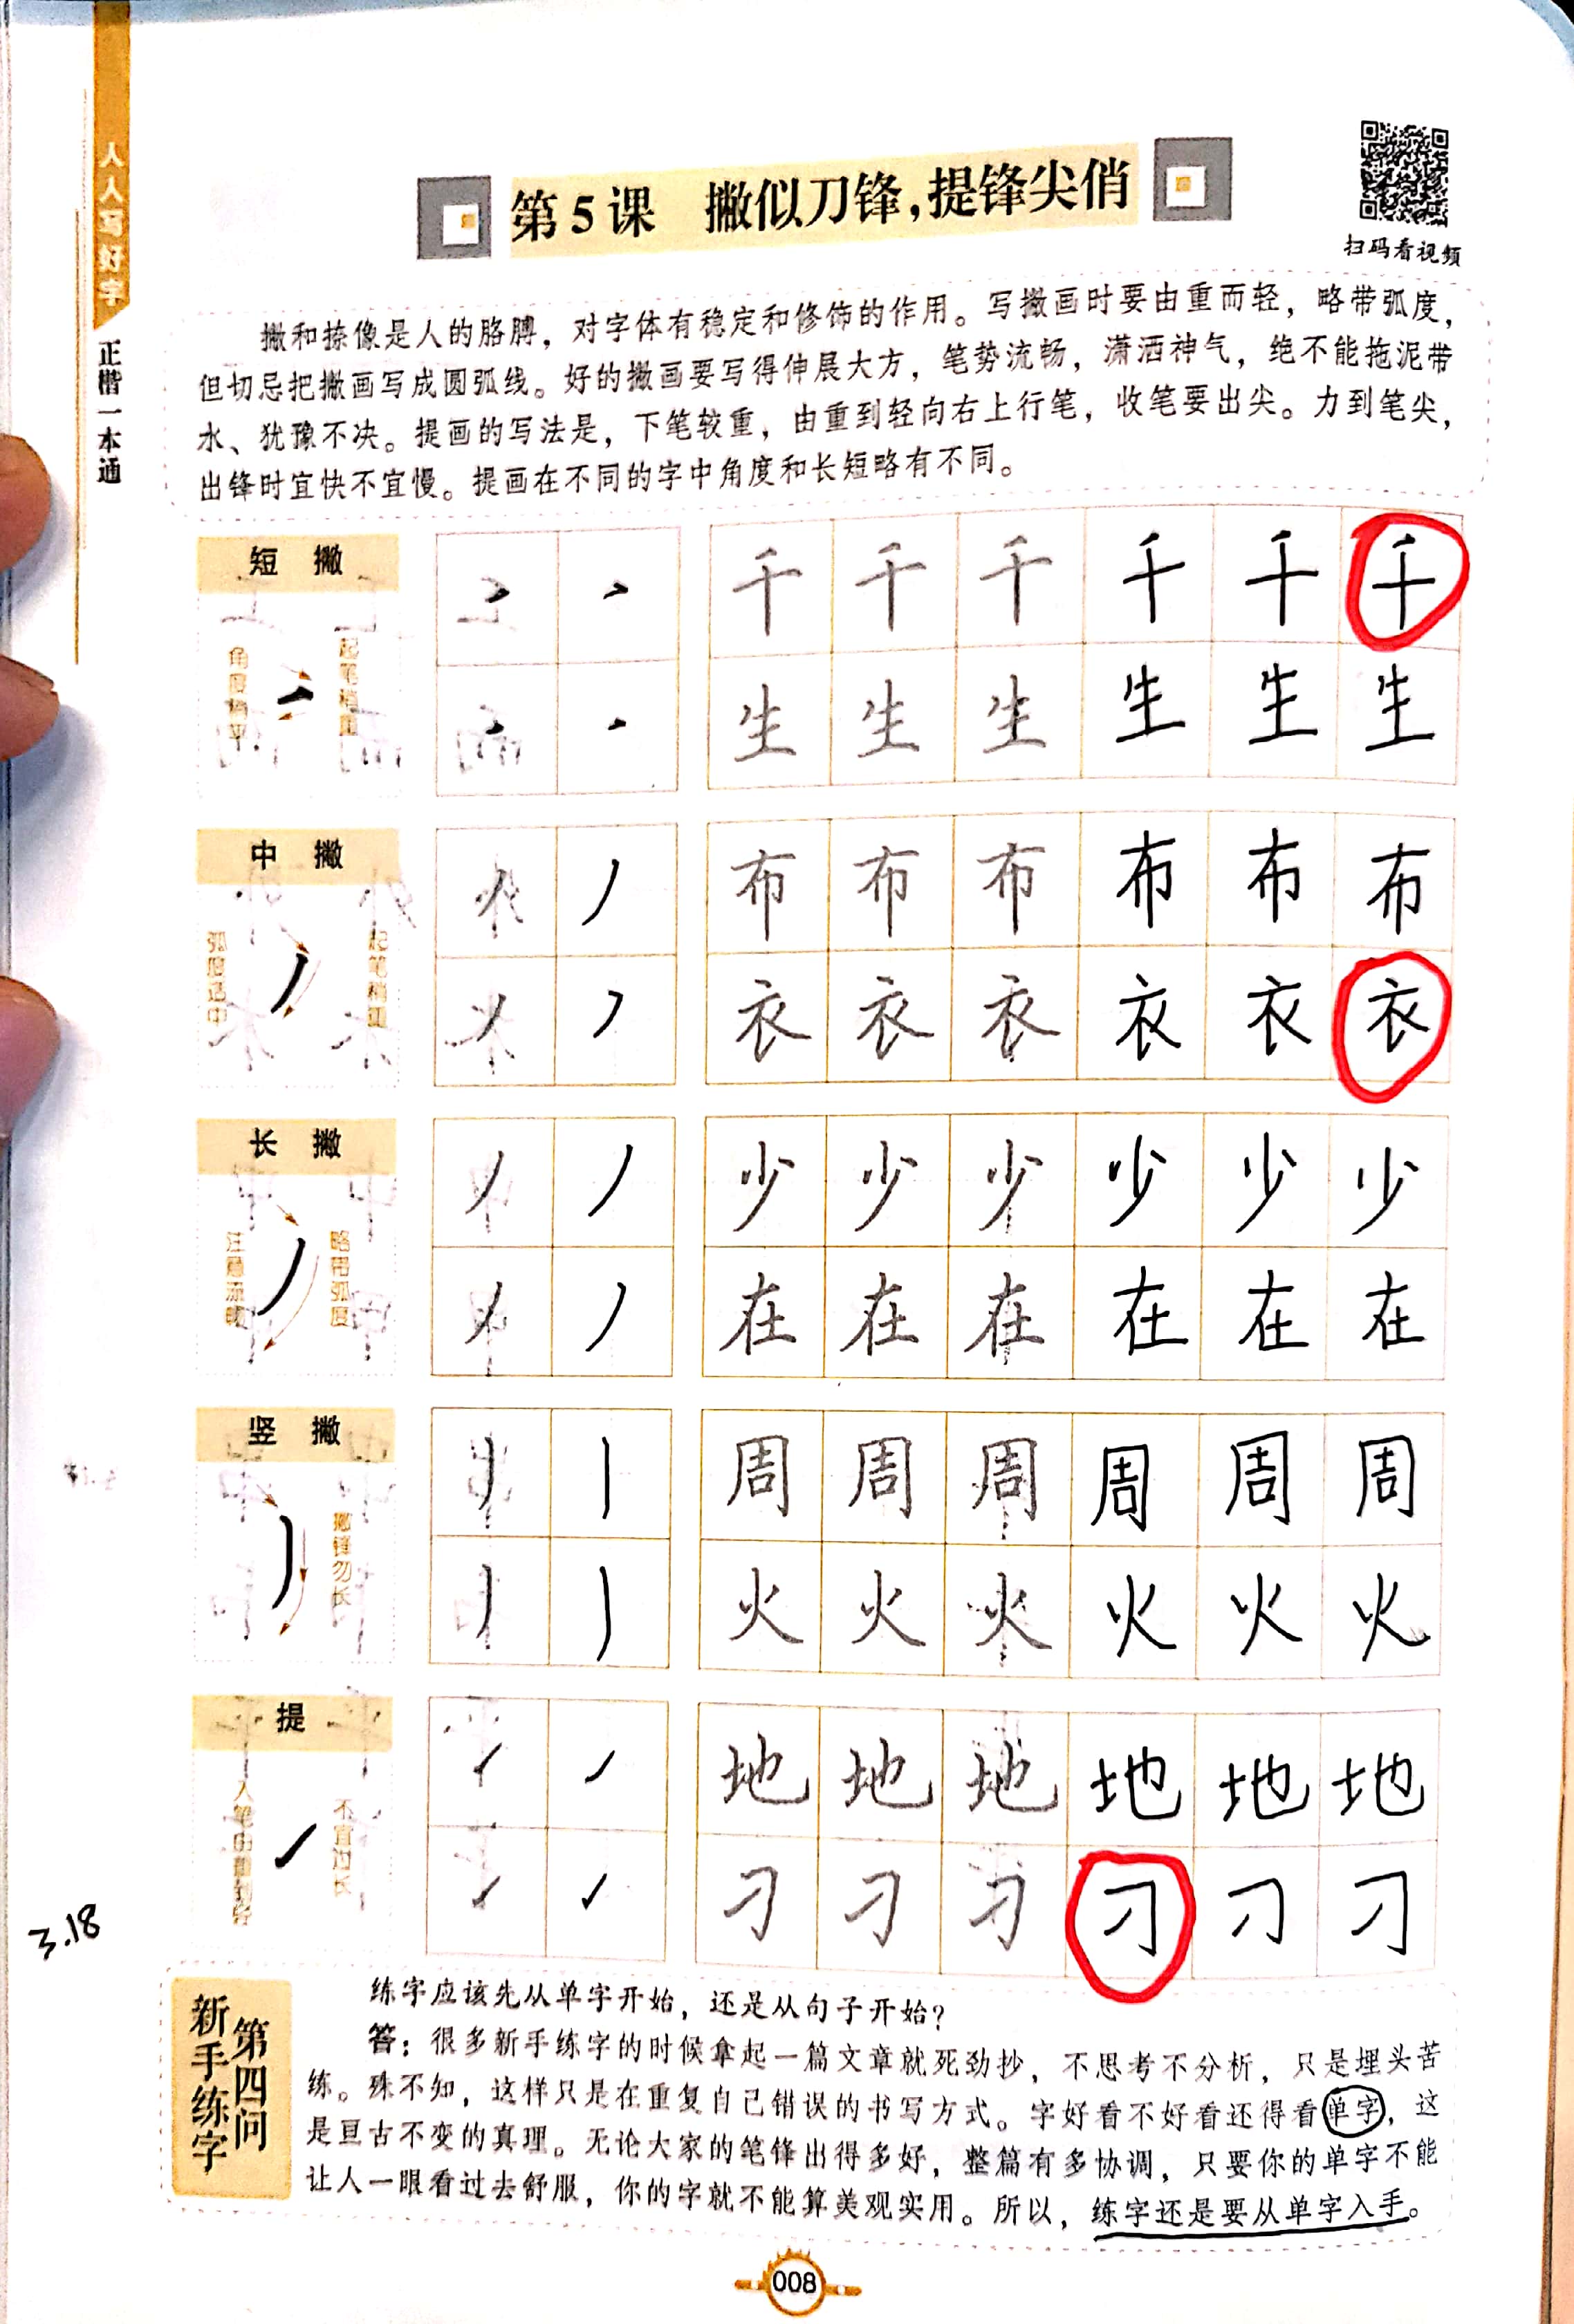 人人写好字
正楷一本通
第5课 撇似刀锋,提锋尖俏
扫码看视频
撇和捺像是人的胳膊，对字体有稳定和修饰的作用。写撇画时要由重而轻，略带弧度，
但切忌把撇画写成圆弧线。好的撇画要写得伸展大方，笔势流畅，潇洒神气，绝不能拖泥带
水、犹豫不决。提画的写法是，下笔较重，由重到轻向右上行笔，收笔要出尖。力到笔尖，
出锋时宜快不宜慢。提画在不同的字中角度和长短略有不同。
短 撇
角度稍平
起笔稍重
千 千 千 千 千 千
生 生 生 生 生 生
中 撇
弧度适中
起笔稍重
布 布 布 布 布 布
衣 衣 衣 衣 衣 衣
长 撇
注意流畅
略带弧度
少 少 少 少 少 少
在 在 在 在 在 在
竖 撇
撇锋勿长
周 周 周 周 周 周
火 火 火 火 火 火
提
入笔由重到轻
不宜过长
地 地 地 地 地 地
刁 刁 刁 刁 刁 刁
3.18
新手练字
第四问
练字应该先从单字开始，还是从句子开始？
答：很多新手练字的时候拿起一篇文章就死劲抄，不思考不分析，只是埋头苦
练。殊不知，这样只是在重复自己错误的书写方式。字好看不好看还得看单字，这
是亘古不变的真理。无论大家的笔锋出得多好，整篇有多协调，只要你的单字不能
让人一眼看过去舒服，你的字就不能算美观实用。所以，练字还是要从单字入手。
008